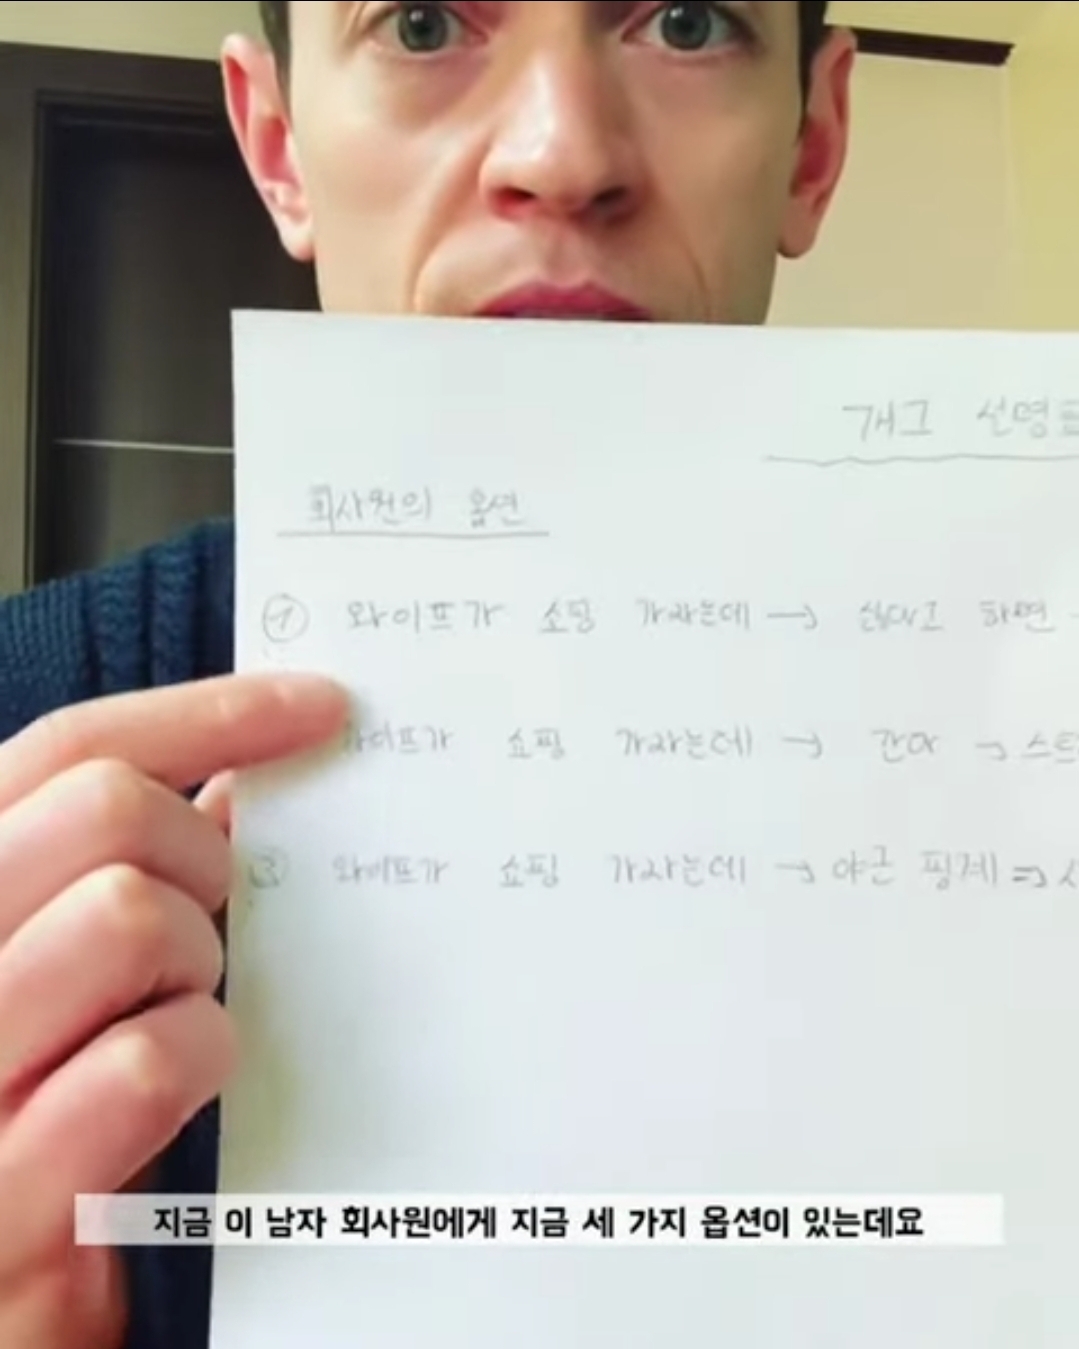 개그 설명표
회사원의 옵션
① 와이프가 쇼핑 가자는데 → 싫다고 하면
와이프가 쇼핑 가자는데 → 간다 → 스트
③ 와이프가 쇼핑 가자는데 → 야근 핑계 ⇒
지금 이 남자 회사원에게 지금 세 가지 옵션이 있는데요